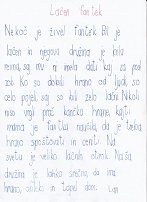 Lačen fantek
Nekoč je živel fantek. Bil je
lačen in njegova družina je bila
revna, saj niso imeli dati kaj za pod
zob. Ko so dobili hrano od ljudi, so
celo pojedli, saj so bili zelo lačni. Nikoli
niso vrgli proč kančka hrane, kajti
mama je fantka naučila, da je treba
hrano spoštovati in ceniti. Na
svetu je veliko lačnih otrok. Naša
družina je lahko srečna, da ima
hrano, obleko in topel dom.